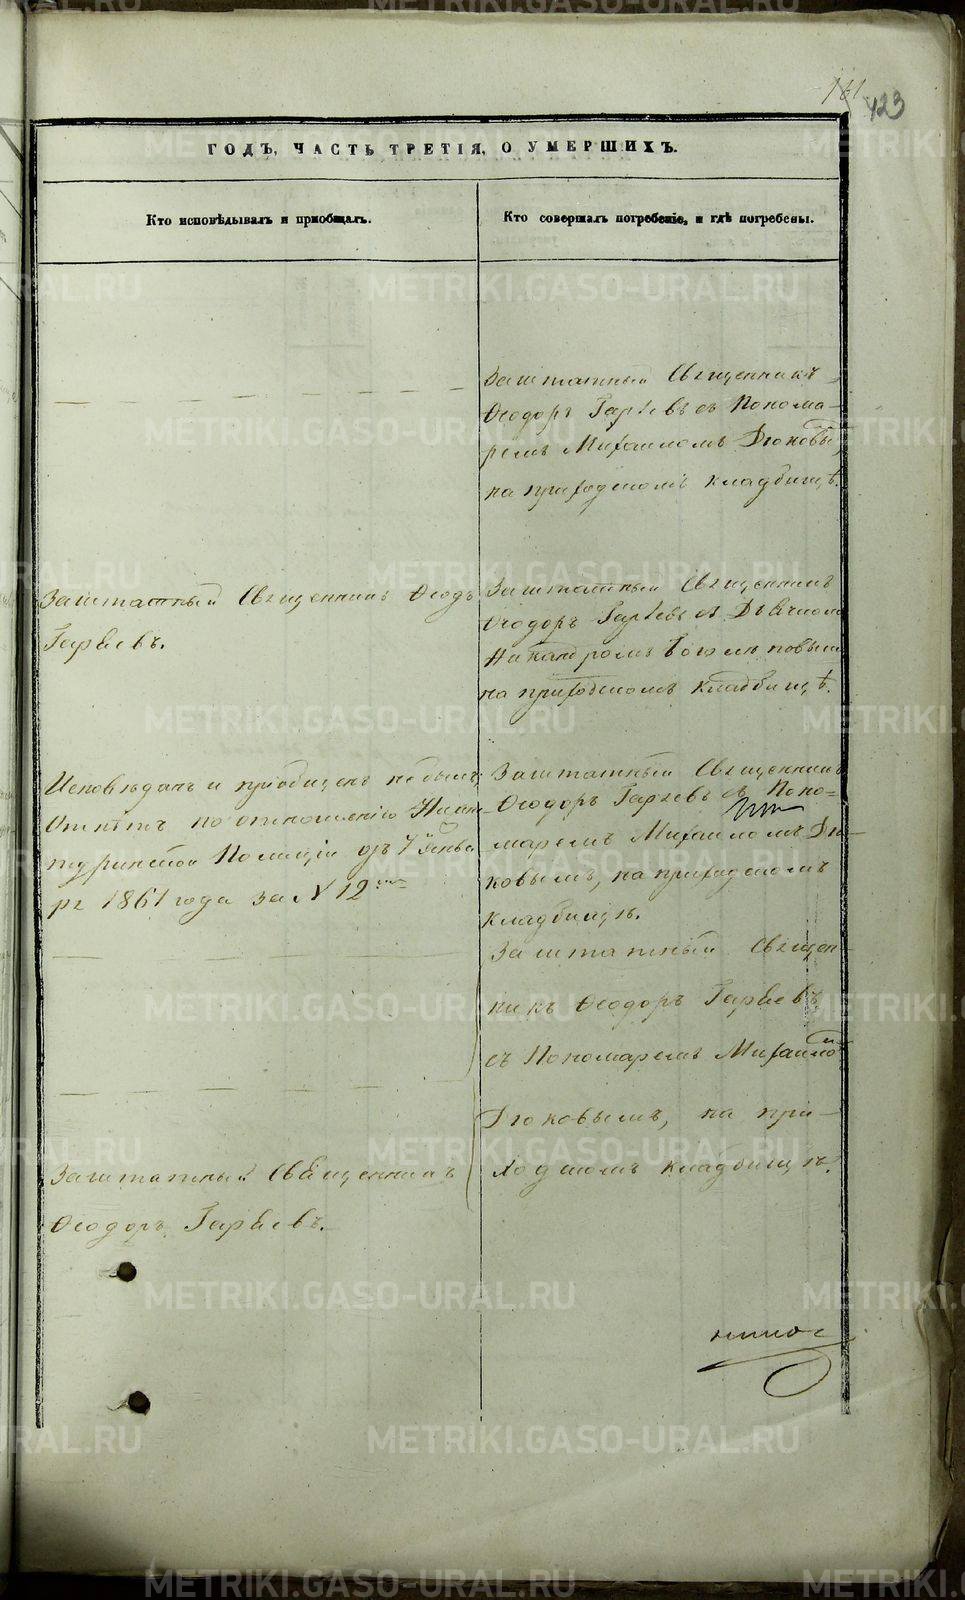 161
423
ГОДЪ, ЧАСТЬ ТРЕТІЯ, О УМЕРШИХЪ.
Кто исповѣдывалъ и пріобщалъ.
Кто совершалъ погребеніе, и гдѣ погребены.
Заштатный Священникъ
Ѳеодоръ Гаряевъ съ Понома-
ремъ Михаиломъ
на приходскомъ кладбищѣ.
Заштатный Священникъ Ѳеод.
Гаряевъ.
Заштатный Священникъ
Ѳеодоръ Гаряевъ съ Дьячкомъ
Никандромъ
на приходскомъ кладбищѣ.
Исповѣданъ и пріобщенъ небылъ,
Отпѣтъ по отношенію Нижне
туринской Полиціи отъ 7 Янва
ря 1861 года за № 12
Заштатный Священникъ
Ѳеодоръ Гаряевъ съ Поно-
маремъ Михаиломъ Дю-
ковымъ, на приходскомъ
кладбищѣ.
Заштатный Священ-
никъ Ѳеодоръ Гаряевъ
съ Пономаремъ Михаиломъ
Дюковымъ, на при-
ходскомъ кладбищѣ.
Заштатный Священникъ
Ѳеодоръ Гаряевъ.
METRIKI.GASO-URAL.RU